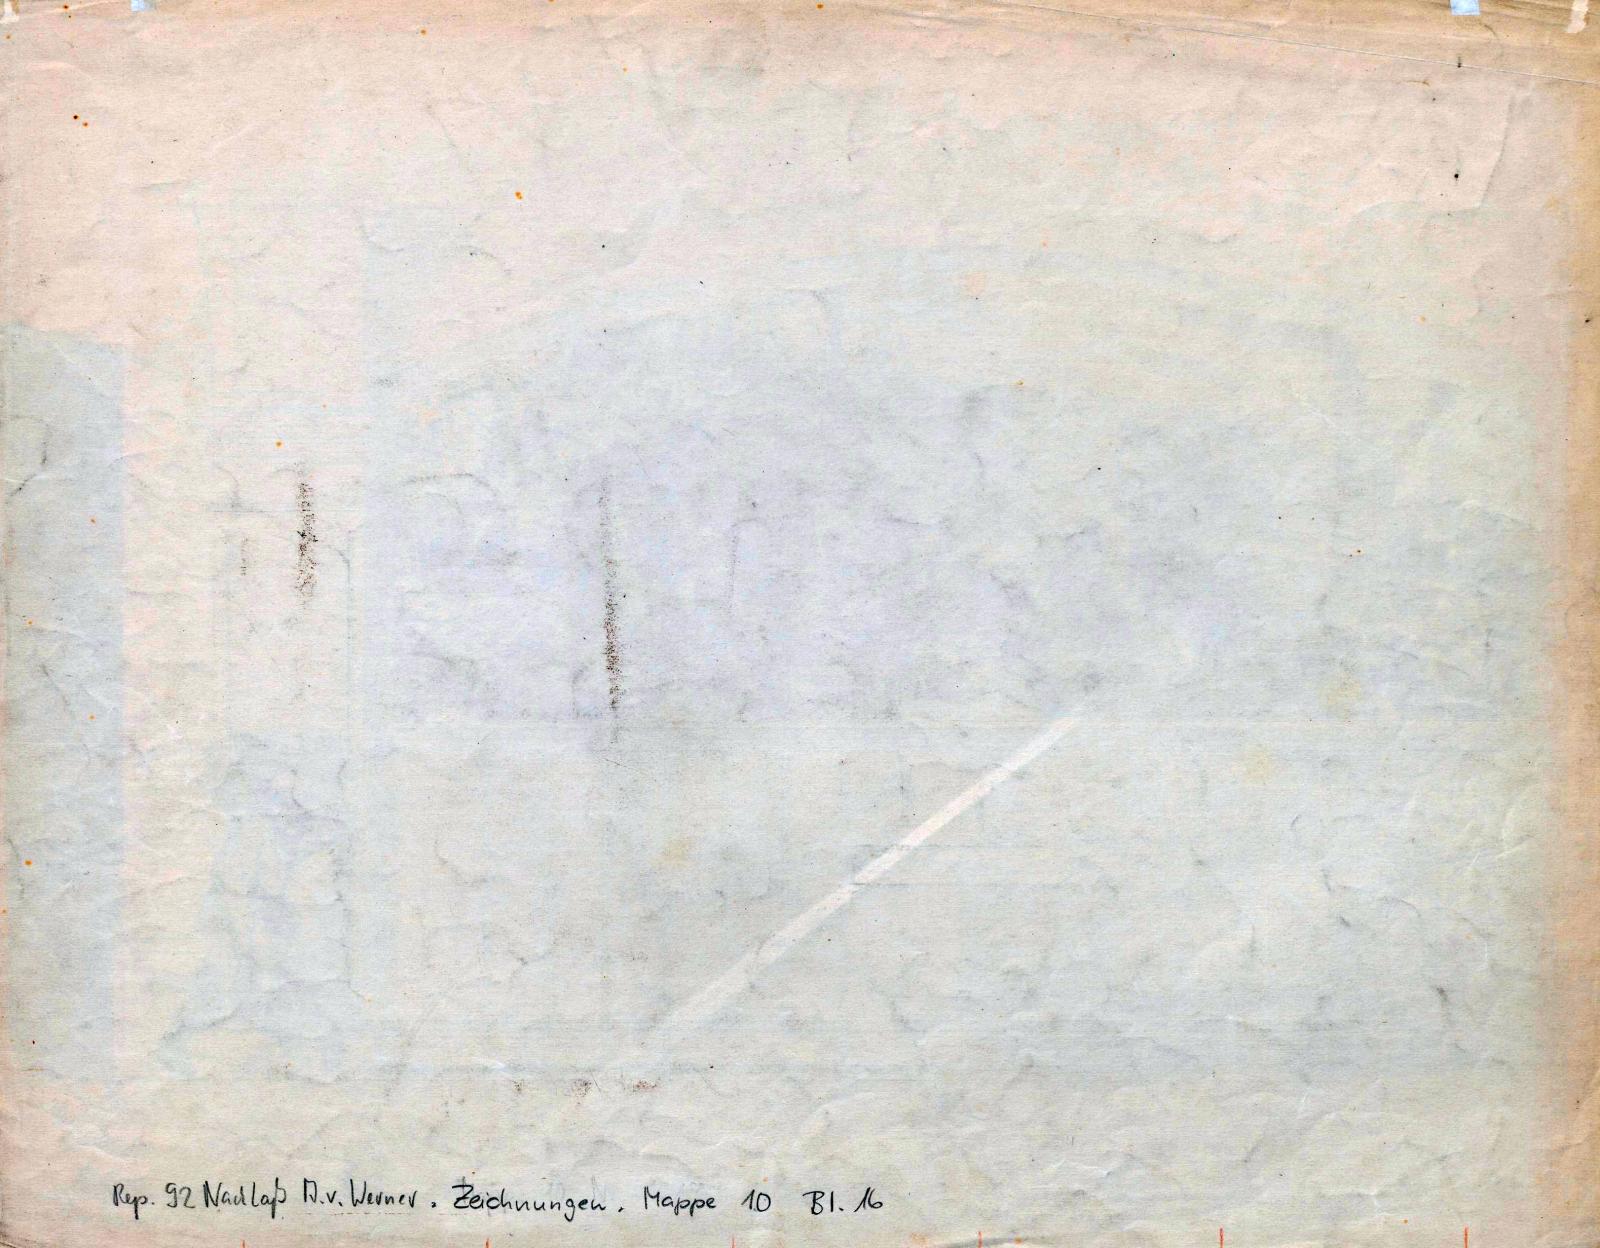 Rep. 92 Nachlaß A.v. Werner. Zeichnungen. Mappe 10 Bl. 16